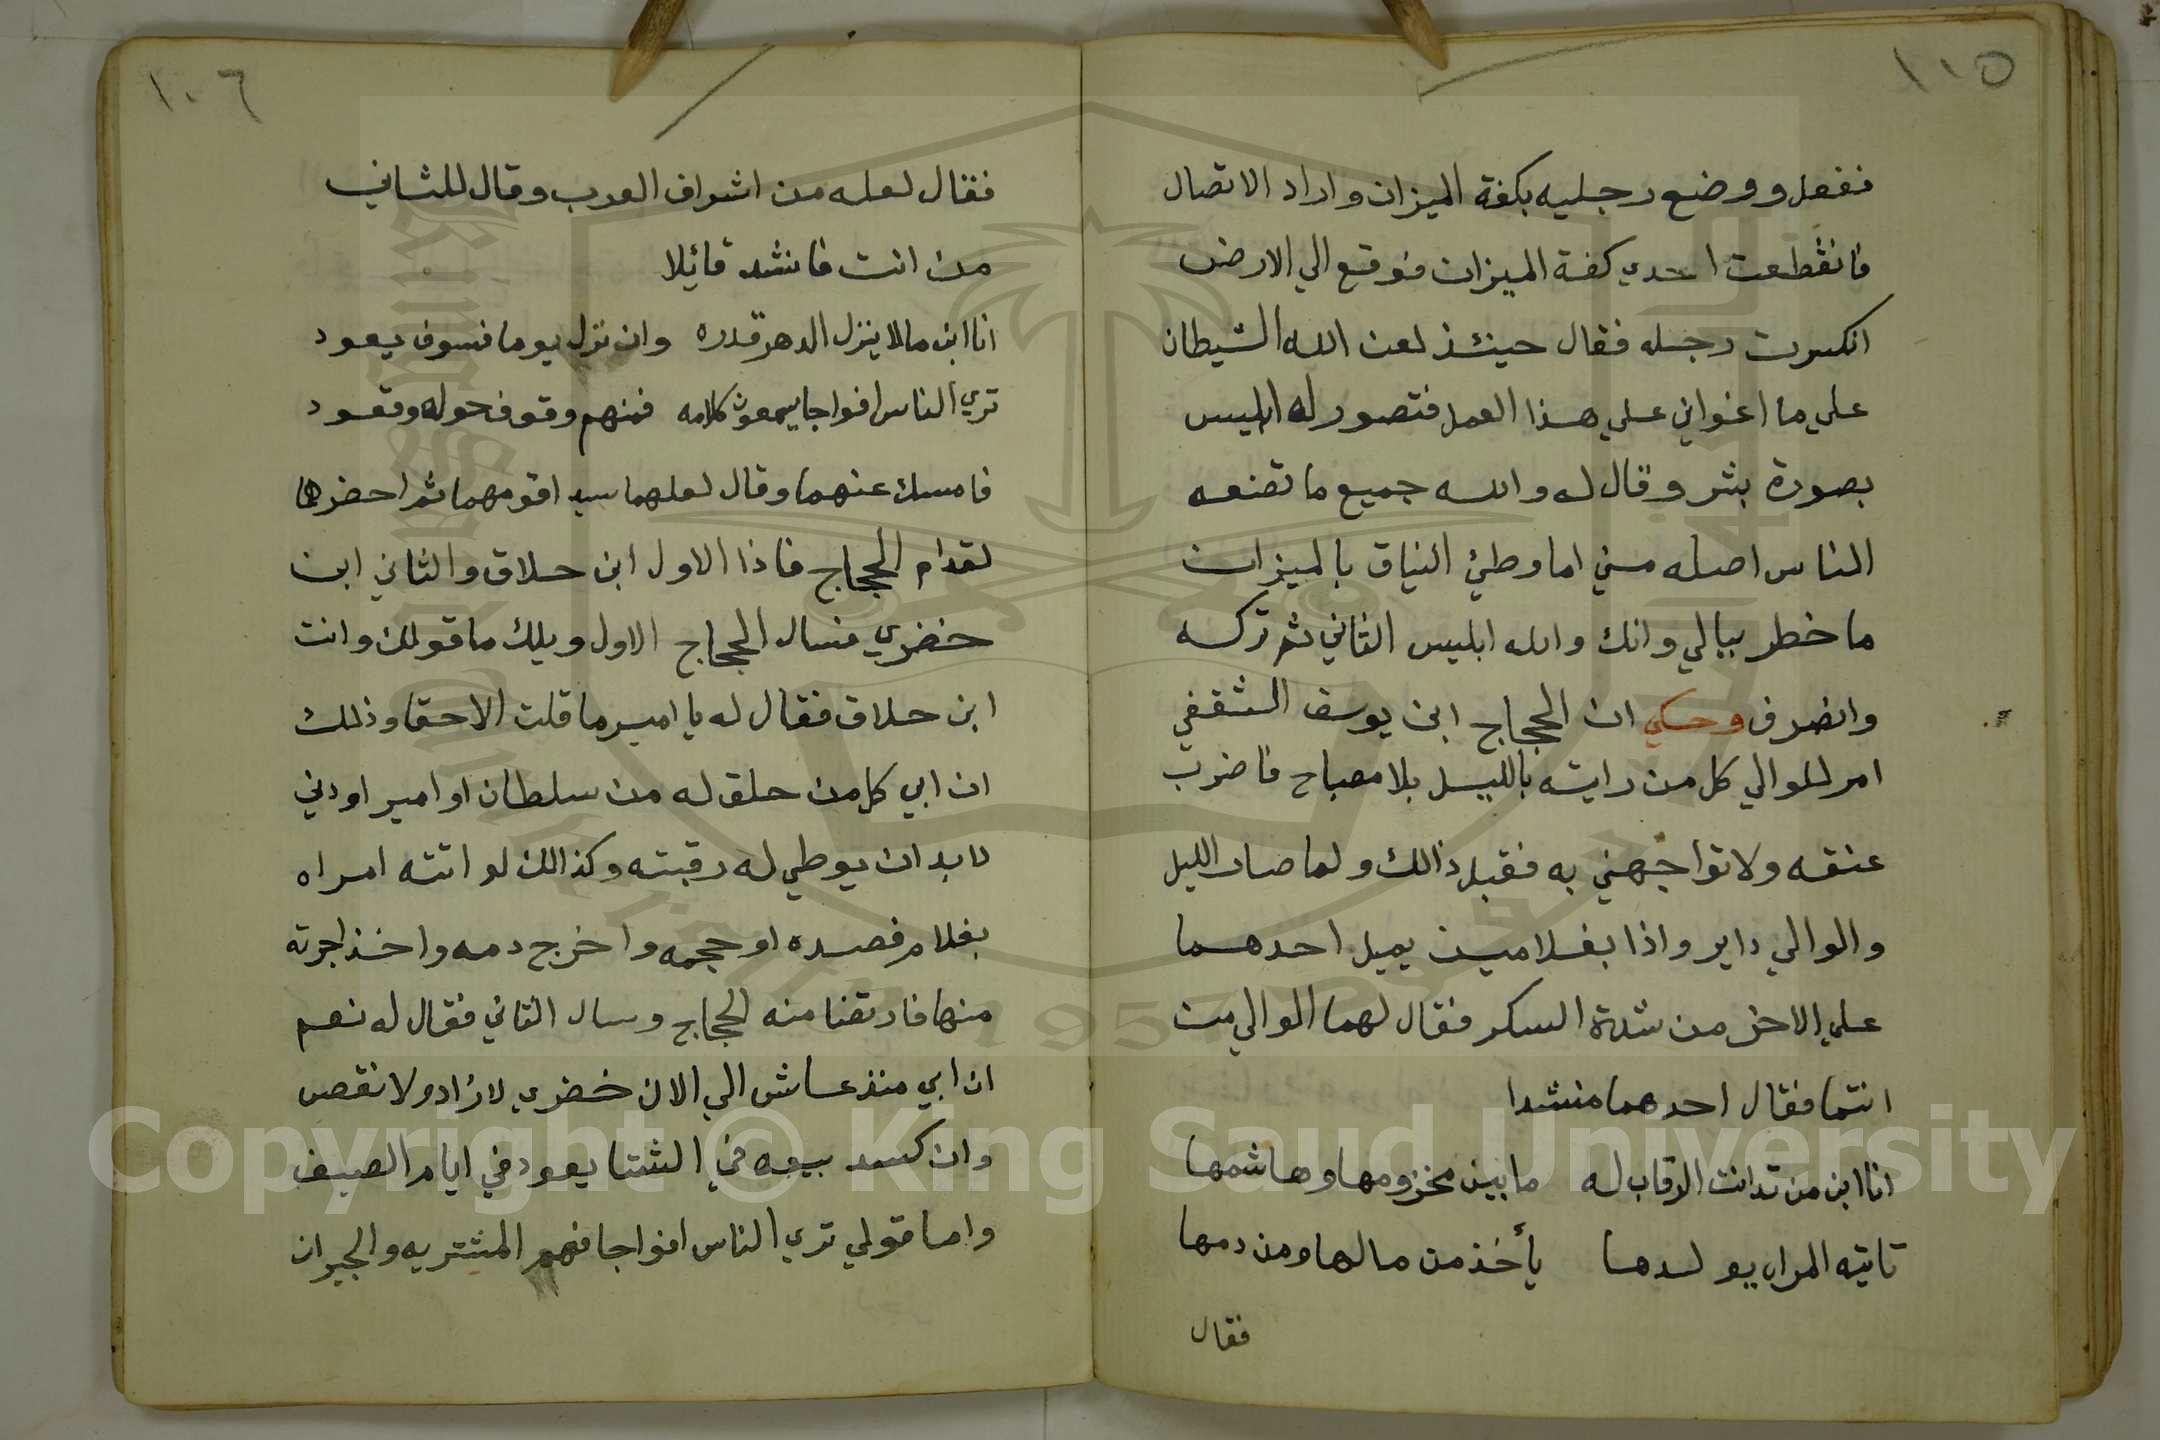 ١٠٥
ففعل ووضع رجليه بكفة الميزان واراد الاتصال
فانقطعت احدي كفة الميزان فوقع الي الارض
انكسرت رجله فقال حينئذ لعن الله الشيطان
علي ما اغواني علي هذا العمل فتصور له ابليس
بصورة بشر وقال له والله جميع ما تصنعه
الناس اصله مني اما وطئ النياق بالميزان
ما خطر ببالي وانك والله ابليس الثاني ثم تركه
وانصرف وحكي ان الحجاج ابن يوسف الثقفي
امر للوالي كل من رايته بالليل بلا مصباح فاضرب
عنقه ولا تواجهني به فقبل ذالك ولما صار الليل
والوالي داير واذا بغلامين يميل احدهما
علي الاخر من شدة السكر فقال لهما الوالي من
انتما فقال احدهما منشدا
انا ابن من تدانت الرقاب له ما بين مخزومها وهاشمها
تاتيه المراه بولدها يأخذ من مالها ومن دمها
فقال
١٠٦
فقال لعله من اشراف العرب وقال للثاني
من انت فانشد قائلا
انا ابن مالا ينزل الدهر قدره وان نزل يوما فسوف يعود
تري الناس افواجا يسمعون كلامه فمنهم وقوف حوله وقعود
فامسك عنهما وقال لعلهما سيد اقومهما ثم احضرهما
لقدام الحجاج فاذا الاول ابن حلاق والثاني ابن
خضري فسال الحجاج الاول ويلك ما قولك وانت
ابن حلاق فقال له يا امير ما قلت الا حقا وذلك
ان ابي كل من حلق له من سلطان او امير او دني
لابد ان يوطي له رقبته وكذالك لو اتته امراه
بغلام فصده او حجمه واخرج دمه واخذ اجرته
منها فارتضا منه الحجاج وسال الثاني فقال له نعم
ان ابي منذ عاش الي الان خضري لا زاد ولا نقص
وان كسد بيعه في الشتا يعود في ايام الصيف
واما قولي تري الناس افواجا فهم المشتريه والجيران
Copyright © King Saud University
King Saud University
1957